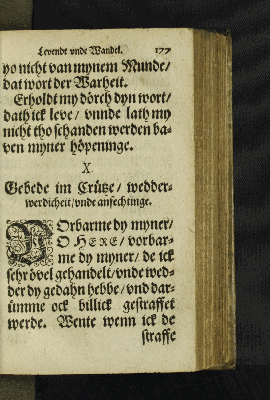 Levendt vnde Wandel. 177
yo nicht van mynem Munde/
dat wort der Warheit.
Erholdt my dörch dyn wort/
dath ick leve / vnnde lath my
nicht tho schanden werden ba-
ven myner höpeninge.
X.
Gebede im Crütze / wedder-
werdicheit/vnde anfechtinge.
VOrbarme dy myner/
O HERE/ vorbar-
me dy myner/ de ick
sehr övel gehandelt/vnde wed-
der dy gedahn hebbe/ vnd dar-
ümme ock billick gestraffet
werde. Wente wenn ick de
straffe